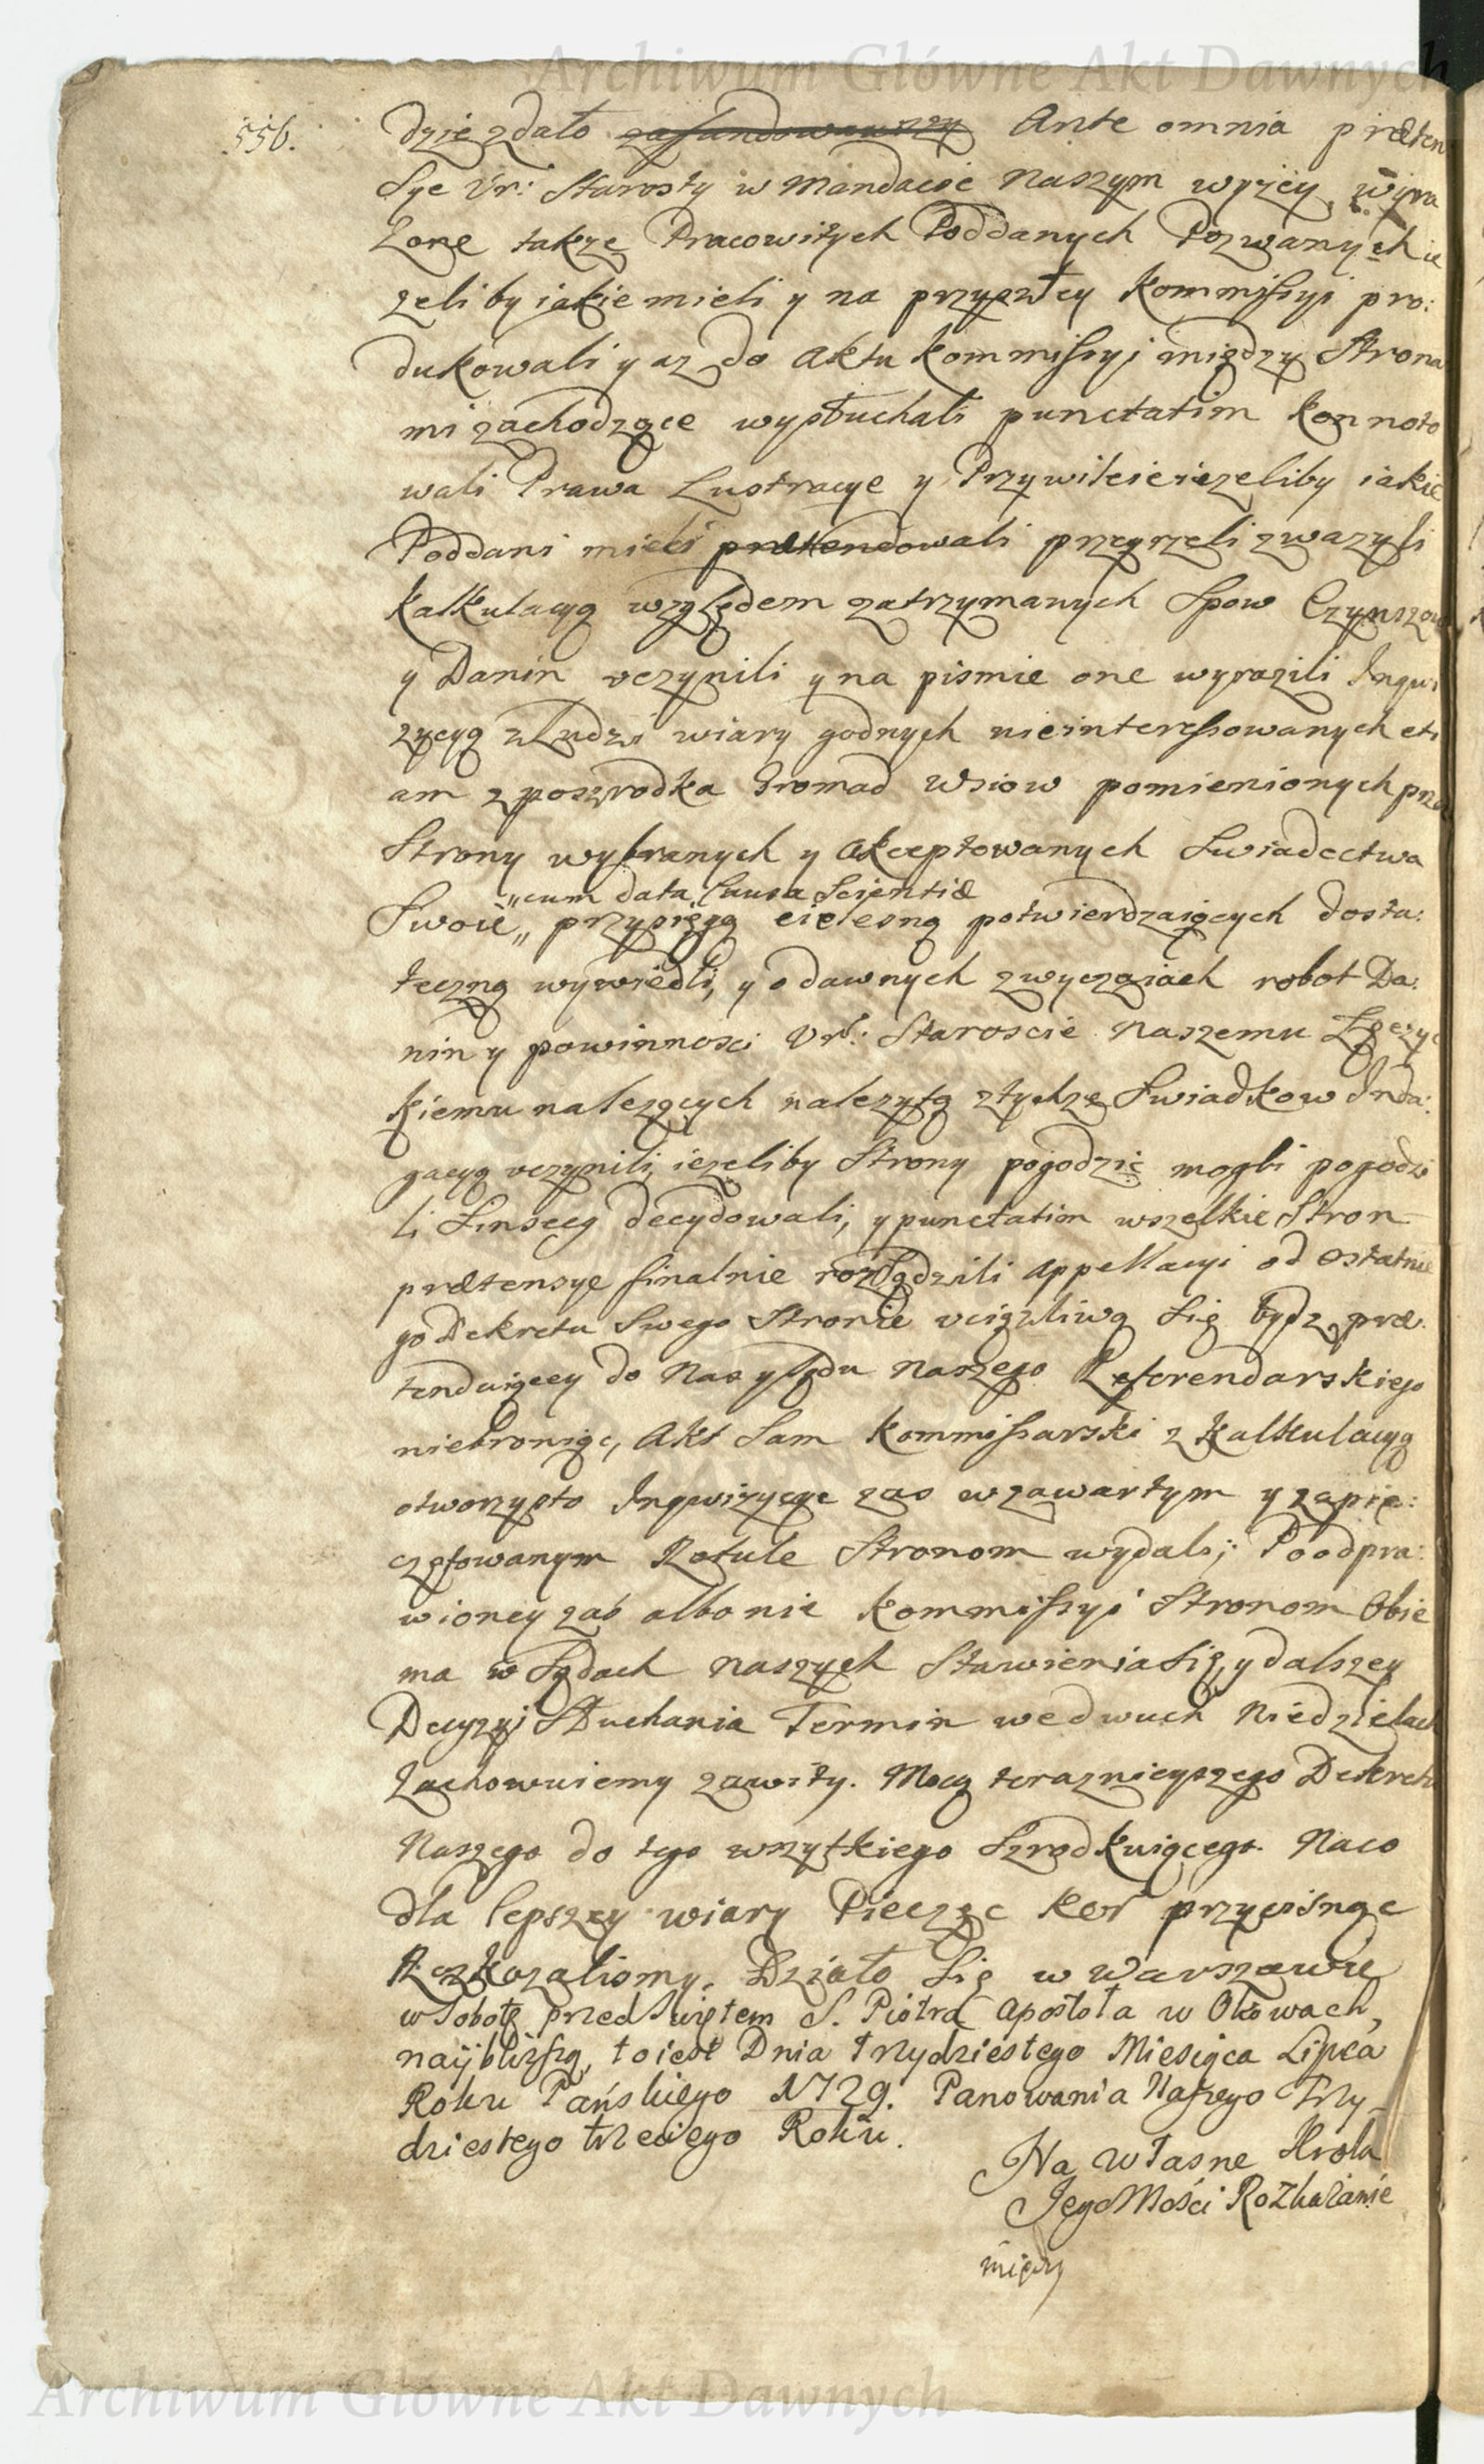 Archiwum Główne Akt Dawnych
556.
dzie zdało zafundowawszy Ante omnia præten
sye Ur: Starosty w Mandacie Naszym wyżey wyra
żone także Pracowitych Poddanych Pozwanych ie
zeliby iakie mieli y na przyszłey Kommissyi pro:
dukowali y az do Aktu Kommissyi między Strona
mi zachodzące wysłuchali punctatim konnoto
wali Prawa Lustracye y Przywileie iezeliby iakie
Poddani mieli prætendowali przeyrzeli zwazyli
Kalkulacyą względem zatrzymanych Spow Czynszow
y Danin uczynili y na pismie one wyrazili Inqwi
zycyą z Ludzi wiary godnych nieinteressowanych eti
am zposzrodka Gromad Wsiow pomienionych prze
Strony wybranych y akceptowanych Swiadectwa
"cum data Causa Scientiæ
Swoie„ przysięgą cielesną potwierdzaiących dosta:
teczną wywiedli, y o dawnych zwyczaiach robot Da:
nin y powinnosci Ur: Staroscie Naszemu Łęczyc
kiemu nalezących nalezytą ztychze Swiadkow Inda:
gacyą uczynili, iezeliby Strony pogodzić mogli pogodzi
li Sinsecg decydowali, y punctatim wszelkie Stron
prætensye finalnie rozsądzili Appellacyi od ostatnie
go Dekretu Swego Stronie uciązliwą Się bydz præ:
tenduiącey do Nas y Sądu Naszego Referendarskiego
niebroniąc, Akt Sam Kommissarski z Kalkulacyą
otworzysto Inqwizycye zas w zawartym y zapie:
czętowanym Rotule Stronom wydali; Po odpra:
wioney zaś albo nie Kommissyi Stronom Obie
ma w Sądach Naszych Stawienia Się, y dalszey
Decyzyi Słuchania Termin we dwuch Niedzielach
Zachowuiemy zawity. Mocą teraznieyszego Dekretu
Naszego do tego wszytkiego Szrodkuiącego. Na co
dla lepszey wiary Pieczęc Kor przycisnąc
Rozkazalismy. Działo Się w Warszawie
w Sobotę przed Swiętem S. Piotra Apostoła w Okowach,
nayblizszą, to iest Dnia Trzydziestego Miesiąca Lipca
Roku Pańskiego 1729. Panowania Naszego Trzy-
dziestego trzeciego Roku.
Na własne Krola
Jego Mości Rozkazanie
między
Archiwum Główne Akt Dawnych